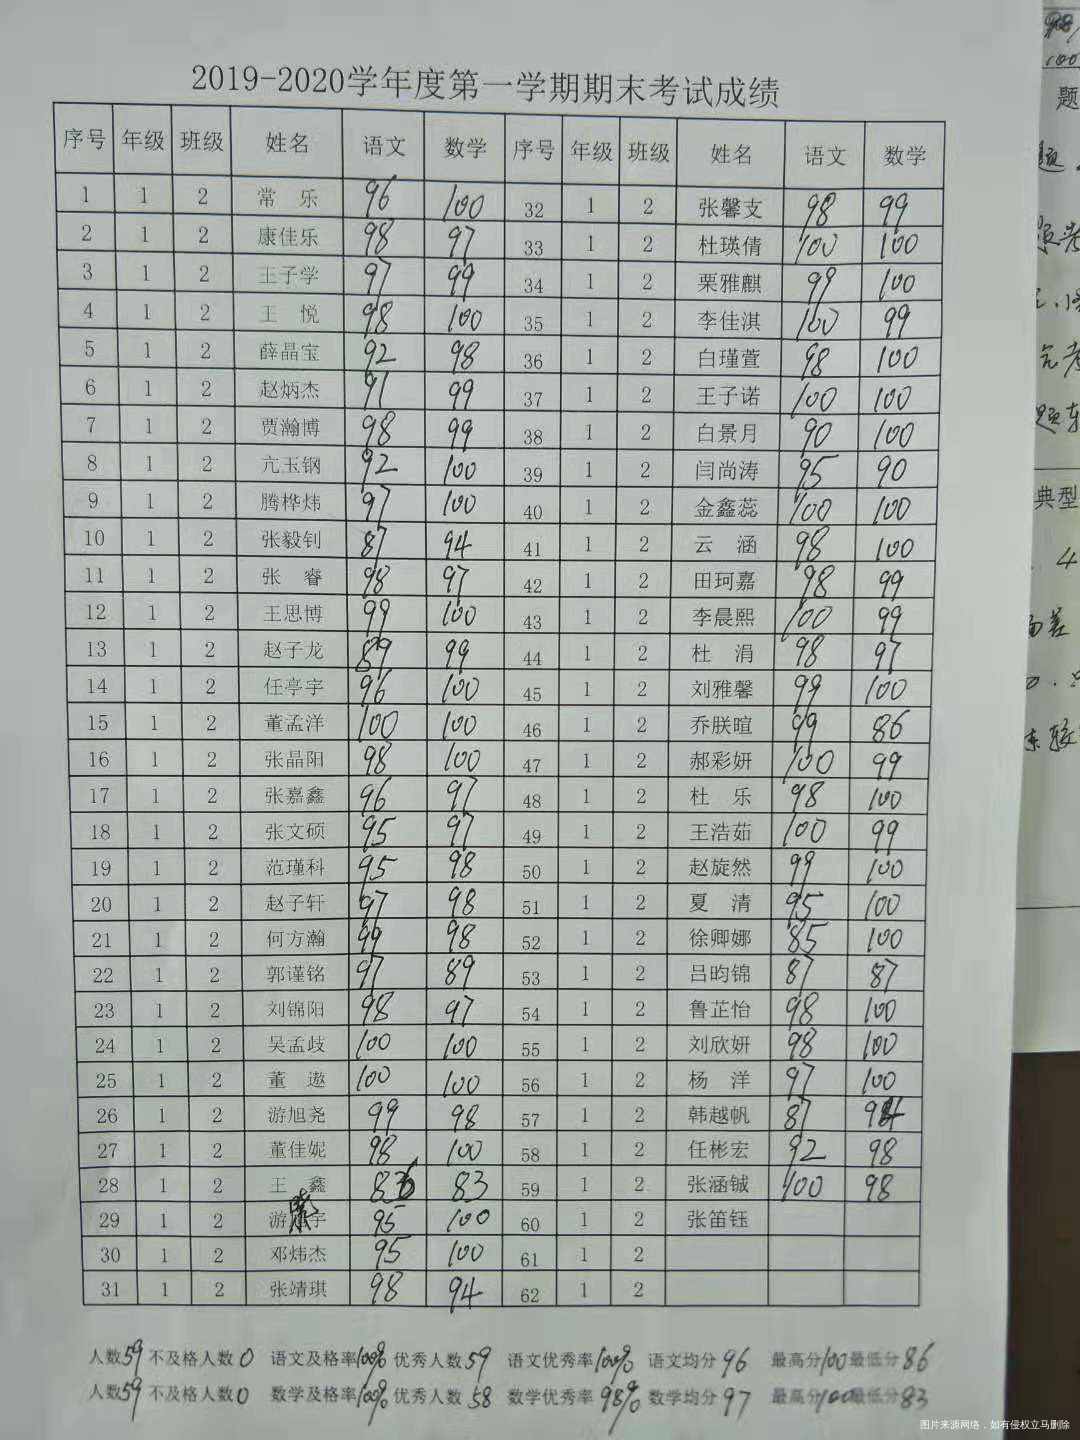 2019-2020学年度第一学期期末考试成绩
序号 年级 班级 姓名 语文 数学 序号 年级 班级 姓名 语文 数学
1 1 2 常 乐 96 100 32 1 2 张馨支 98 99
2 1 2 康佳乐 98 97 33 1 2 杜瑛倩 100 100
3 1 2 王子学 97 99 34 1 2 栗雅麒 99 100
4 1 2 王 悦 98 100 35 1 2 李佳淇 100 99
5 1 2 薛晶宝 92 98 36 1 2 白瑾萱 98 100
6 1 2 赵炳杰 91 99 37 1 2 王子诺 100 100
7 1 2 贾瀚博 98 99 38 1 2 白景月 90 100
8 1 2 亢玉钢 92 100 39 1 2 闫尚涛 95 90
9 1 2 腾桦炜 97 100 40 1 2 金鑫蕊 100 100
10 1 2 张毅钊 87 94 41 1 2 云 涵 98 100
11 1 2 张 睿 98 97 42 1 2 田珂嘉 98 99
12 1 2 王思博 99 100 43 1 2 李晨熙 100 99
13 1 2 赵子龙 89 99 44 1 2 杜 涓 98 97
14 1 2 任亭宇 96 100 45 1 2 刘雅馨 99 100
15 1 2 董孟洋 100 100 46 1 2 乔朕暄 99 86
16 1 2 张晶阳 98 100 47 1 2 郝彩妍 100 99
17 1 2 张嘉鑫 96 97 48 1 2 杜 乐 98 100
18 1 2 张文硕 95 97 49 1 2 王浩茹 100 99
19 1 2 范瑾科 95 98 50 1 2 赵旋然 99 100
20 1 2 赵子轩 97 98 51 1 2 夏 清 95 100
21 1 2 何方瀚 99 98 52 1 2 徐卿娜 85 100
22 1 2 郭谨铭 97 89 53 1 2 吕昀锦 87 87
23 1 2 刘锦阳 98 97 54 1 2 鲁芷怡 98 100
24 1 2 吴孟歧 100 100 55 1 2 刘欣妍 98 100
25 1 2 董 遨 100 100 56 1 2 杨 洋 97 100
26 1 2 游旭尧 99 98 57 1 2 韩越帆 87 94
27 1 2 董佳妮 98 100 58 1 2 任彬宏 92 98
28 1 2 王 鑫 86 83 59 1 2 张涵铖 100 98
29 1 2 游 宇 95 100 60 1 2 张笛钰
30 1 2 邓炜杰 95 100 61 1 2
31 1 2 张靖琪 98 94 62 1 2
人数59 不及格人数0 语文及格率100% 优秀人数59 语文优秀率100% 语文均分96 最高分100 最低分86
人数59 不及格人数0 数学及格率100% 优秀人数58 数学优秀率98% 数学均分97 最高分100 最低分83
98
100
题
典型
4
图片来源网络，如有侵权立马删除